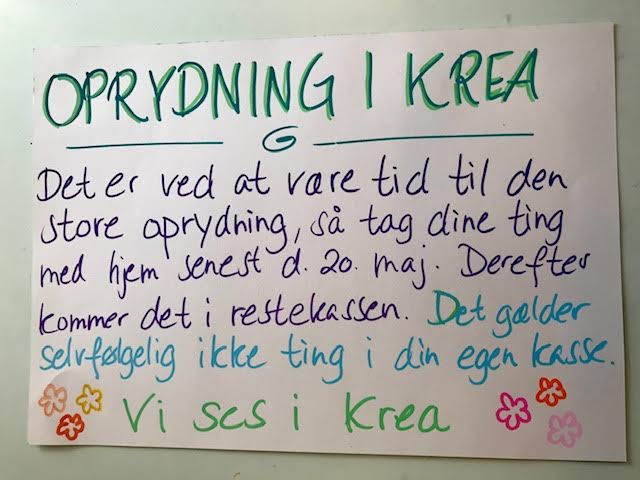 OPRYDNING I KREA
Det er ved at være tid til den
store oprydning, så tag dine ting
med hjem senest d. 20. maj. Derefter
kommer det i restekassen. Det gælder
selvfølgelig ikke ting i din egen kasse.
Vi ses i Krea